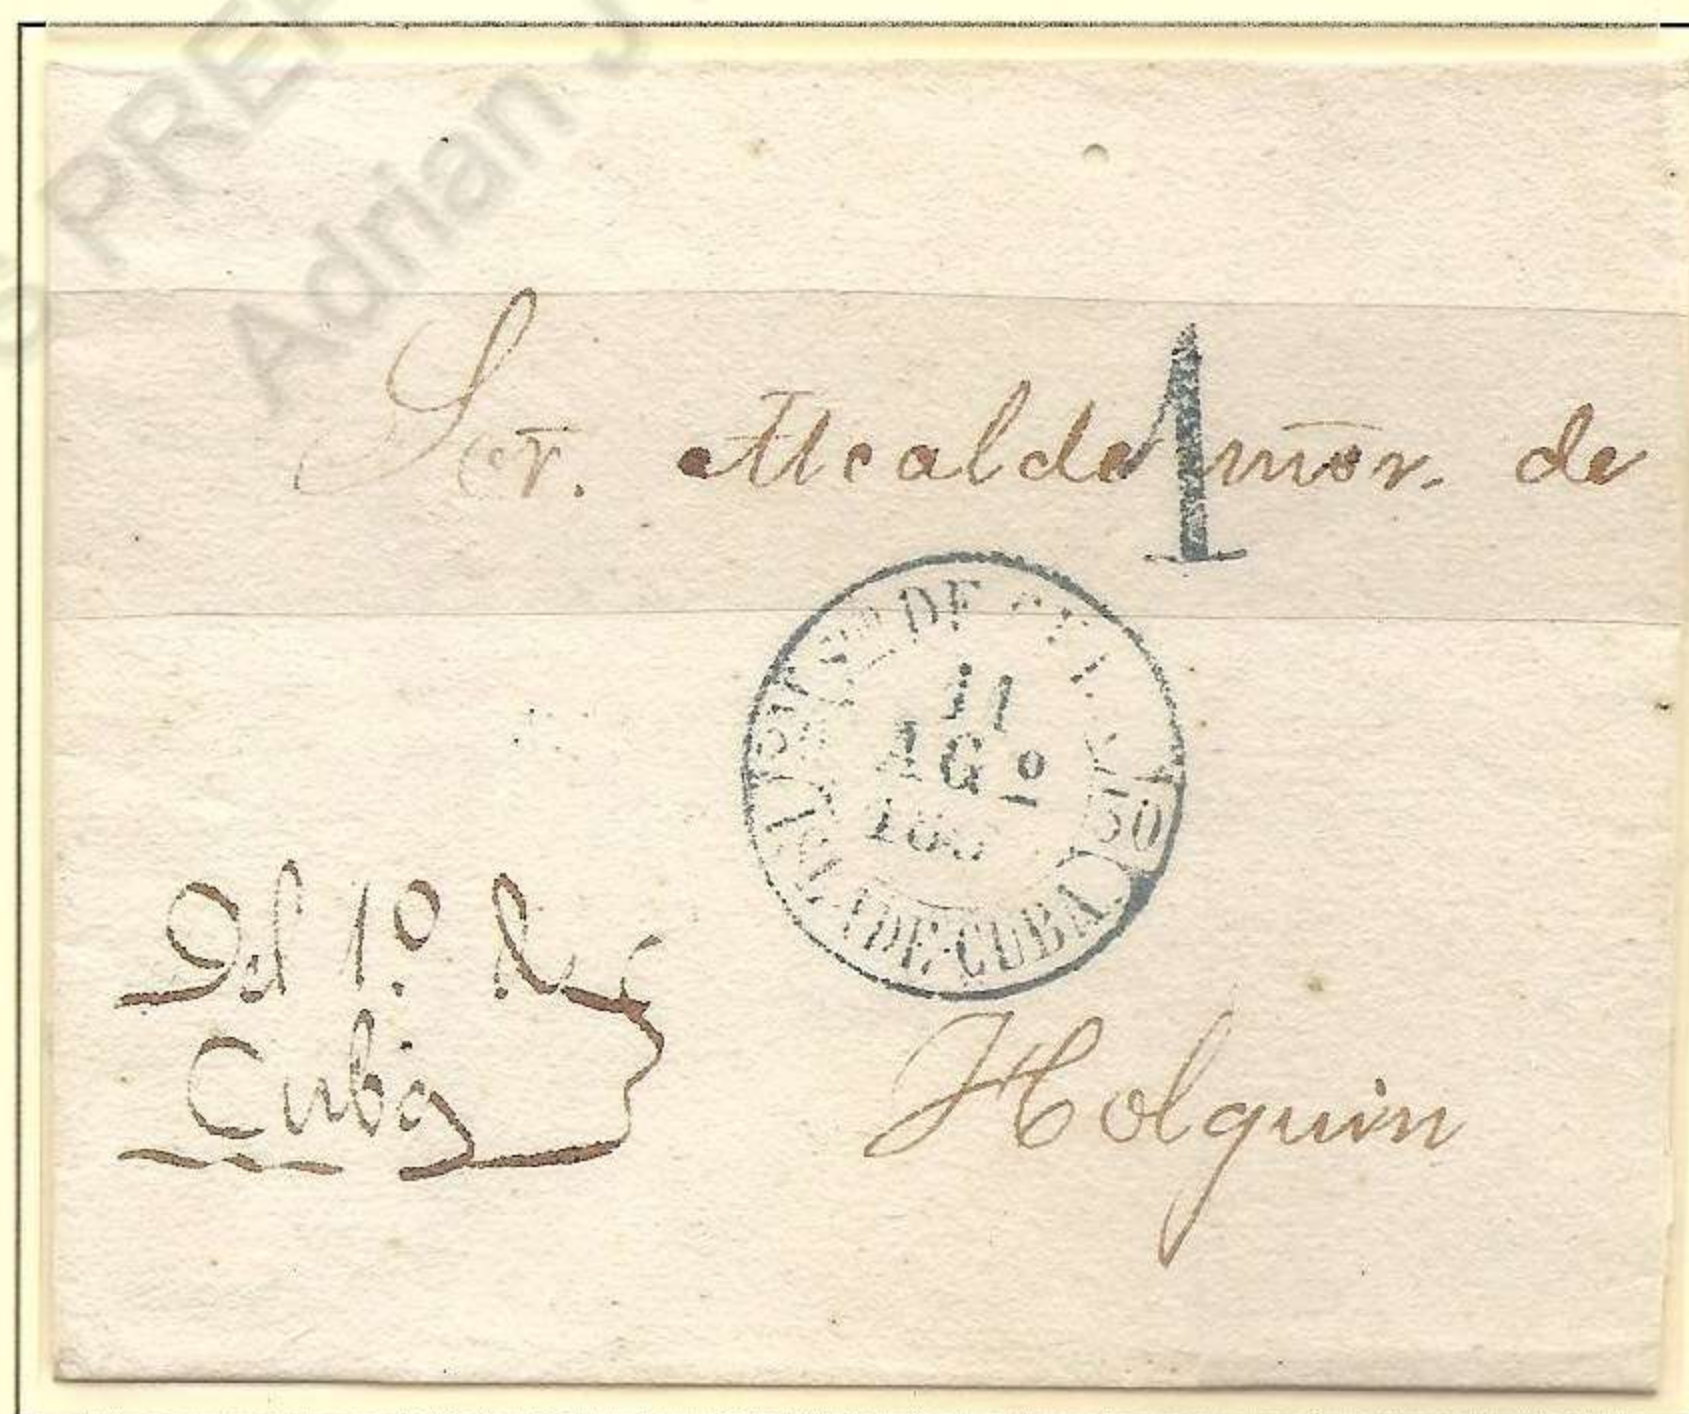 S PREF
Adrian J
1
Sor. Alcalde mor. de
DE
11
AGº
185
ISLA DE CUBA.
Del 1º. de
Cuba
Holguin